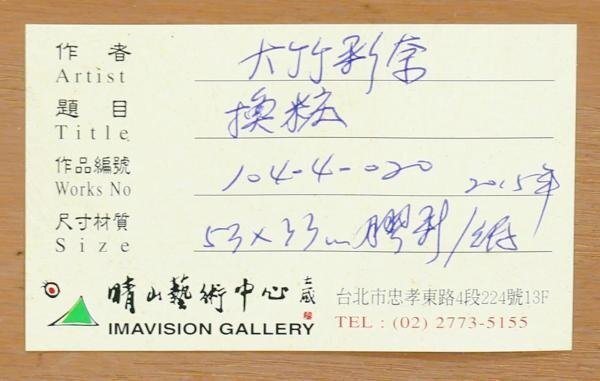 作者 大竹彩奈
Artist
題目 換粧
Title
作品編號 104-4-020 2015年
Works No
尺寸材質 53×33cm 膠彩/紙
Size
晴山藝術中心
IMAVISION GALLERY
台北市忠孝東路4段224號13F
TEL : (02) 2773-5155